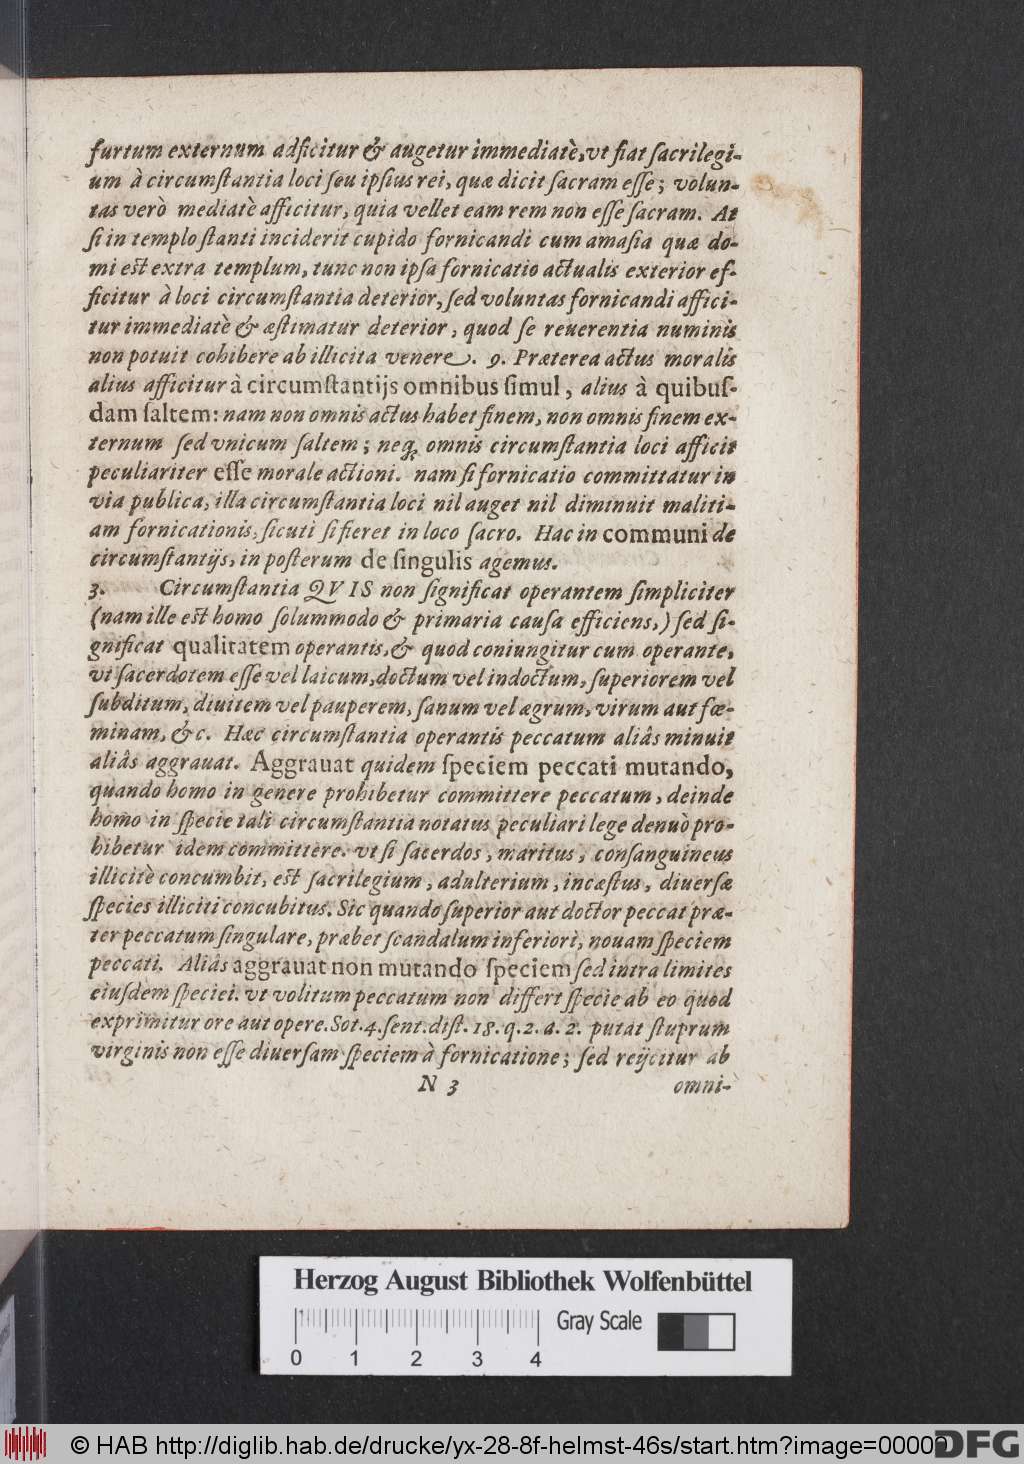 furtum externum adficitur & augetur immediatè, vt fiat ſacrilegi-
um à circumſtantia loci ſeu ipſius rei, quæ dicit ſacram eſſe; volun-
tas verò mediatè afficitur, quia vellet eam rem non eſſe ſacram. At
ſi in templo ſtanti inciderit cupido fornicandi cum amaſia quæ do-
mi eſt extra templum, tunc non ipſa fornicatio actualis exterior ef-
ficitur à loci circumſtantia deterior, ſed voluntas fornicandi affici-
tur immediatè & æſtimatur deterior, quod ſe reuerentia numinis
non potuit cohibere ab illicita venere. 9. Præterea actus moralis
alius afficitur à circumſtantijs omnibus ſimul, alius à quibuſ-
dam ſaltem: nam non omnis actus habet finem, non omnis finem ex-
ternum ſed vnicum ſaltem; neq; omnis circumſtantia loci afficit
peculiariter eſſe morale actioni. nam ſi fornicatio committatur in
via publica, illa circumſtantia loci nil auget nil diminuit maliti-
am fornicationis, ſicuti ſi fieret in loco ſacro. Hac in communi de
circumſtantijs, in poſterum de ſingulis agemus.
3. Circumſtantia QVIS non ſignificat operantem ſimpliciter
(nam ille eſt homo ſolummodo & primaria cauſa efficiens,) ſed ſi-
gnificat qualitatem operantis, & quod coniungitur cum operante,
vt ſacerdotem eſſe vel laicum, doctum vel indoctum, ſuperiorem vel
ſubditum, diuitem vel pauperem, ſanum vel ægrum, virum aut fœ-
minam, &c. Hæc circumſtantia operantis peccatum aliâs minuit
aliâs aggrauat. Aggrauat quidem ſpeciem peccati mutando,
quando homo in genere prohibetur committere peccatum, deinde
homo in ſpecie tali circumſtantia notatus peculiari lege denuò pro-
hibetur idem committere. vt ſi ſacerdos, maritus, conſanguineus
illicitè concumbit, eſt ſacrilegium, adulterium, incæſtus, diuerſæ
ſpecies illiciti concubitus. Sic quando ſuperior aut doctor peccat præ-
ter peccatum ſingulare, præbet ſcandalum inferiori, nouam ſpeciem
peccati. Aliâs aggrauat non mutando ſpeciem ſed intra limites
eiuſdem ſpeciei. vt volitum peccatum non differt ſpecie ab eo quod
exprimitur ore aut opere. Sot. 4. ſent. diſt. 18. q. 2. a. 2. putat ſtuprum
virginis non eſſe diuerſam ſpeciem à fornicatione; ſed reijcitur ab
N 3 omni-
Herzog August Bibliothek Wolfenbüttel
Gray Scale
0 1 2 3 4
© HAB http://diglib.hab.de/drucke/yx-28-8f-helmst-46s/start.htm?image=00000
DFG